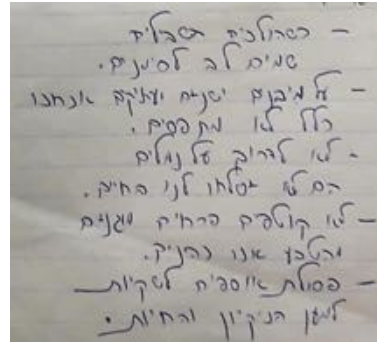 - כשהולכים בשבילים
שמים לב לסימנים.
- על מבנים ישנים ועתיקים אנחנו
כלל לא מטפסים.
- לא לדרוך על נמלים
הם לא יסלחו לנו החיים.
- לא קוטפים פרחים מוגנים
מהטבע אנו נהנים.
- פסולת אוספים לשקיות
למען הניקיון והחיות.